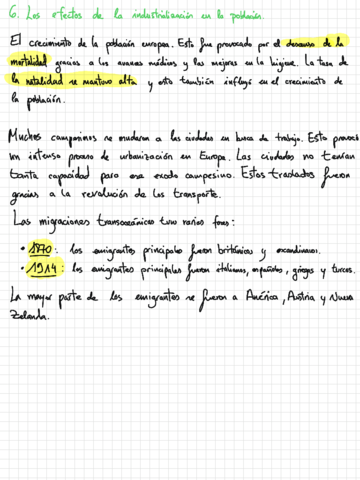 6. Los efectos de la industrialización en la población.
El crecimiento de la población europea. Esto fue provocado por el descenso de la
mortalidad gracias a los avances médicos y las mejoras en la higiene. La tasa de
la natalidad se mantuvo alta y esto también influyó en el crecimiento de
la población.
Muchos campesinos se mudaron a las ciudades en busca de trabajo. Esto provocó
un intenso proceso de urbanización en Europa. Las ciudades no tenían
tanta capacidad para ese éxodo campesino. Estos traslados fueron
gracias a la revolución de los transporte.
Las migraciones transoceánicas tuvo varias fases:
• 1870: los emigrantes principales fueron británicos y escandinavos.
• 1914: los emigrantes principales fueron italianos, españoles, griegos y turcos.
La mayor parte de los emigrantes se fueron a América, Austria y Nueva
Zelanda.